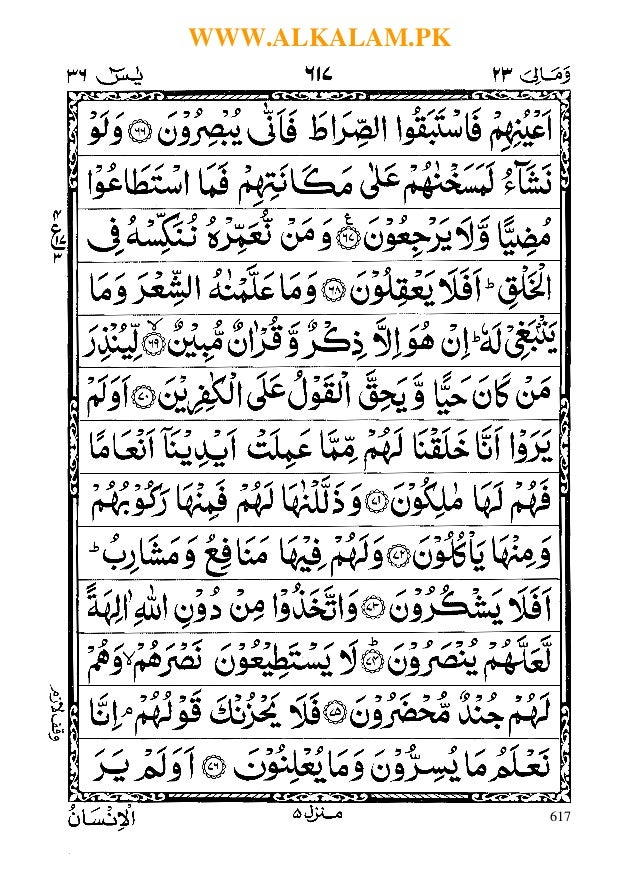 WWW.ALKALAM.PK
وَمَالِىَ ٢٣
٦١٧
يٰسٓ ٣٦
اَعْيُنِهِمْ فَاسْتَبَقُوا الصِّرَاطَ فَاَنّٰى يُبْصِرُوْنَ ﴿٦٦﴾ وَلَوْ
نَشَآءُ لَمَسَخْنٰهُمْ عَلٰى مَكَانَتِهِمْ فَمَا اسْتَطَاعُوْا
مُضِيًّا وَّلَا يَرْجِعُوْنَ ﴿٦٧﴾ۧ وَمَنْ نُّعَمِّرْهُ نُنَكِّسْهُ فِى
الْخَلْقِ ؕ اَفَلَا يَعْقِلُوْنَ ﴿٦٨﴾ وَمَا عَلَّمْنٰهُ الشِّعْرَ وَمَا
يَنْۢبَغِىْ لَهٗ ؕ اِنْ هُوَ اِلَّا ذِكْرٌ وَّقُرْاٰنٌ مُّبِيْنٌ ﴿٦٩﴾ۙ لِّيُنْذِرَ
مَنْ كَانَ حَيًّا وَّيَحِقَّ الْقَوْلُ عَلَى الْكٰفِرِيْنَ ﴿٧٠﴾ اَوَلَمْ
يَرَوْا اَنَّا خَلَقْنَا لَهُمْ مِّمَّا عَمِلَتْ اَيْدِيْنَاۤ اَنْعَامًا
فَهُمْ لَهَا مٰلِكُوْنَ ﴿٧١﴾ وَذَلَّلْنٰهَا لَهُمْ فَمِنْهَا رَكُوْبُهُمْ
وَمِنْهَا يَاْكُلُوْنَ ﴿٧٢﴾ وَلَهُمْ فِيْهَا مَنَافِعُ وَمَشَارِبُ ؕ
اَفَلَا يَشْكُرُوْنَ ﴿٧٣﴾ وَاتَّخَذُوْا مِنْ دُوْنِ اللّٰهِ اٰلِهَةً
لَّعَلَّهُمْ يُنْصَرُوْنَ ﴿٧٤﴾ؕ لَا يَسْتَطِيْعُوْنَ نَصْرَهُمْ ۙ وَهُمْ
لَهُمْ جُنْدٌ مُّحْضَرُوْنَ ﴿٧٥﴾ فَلَا يَحْزُنْكَ قَوْلُهُمْ ۘ اِنَّا
نَعْلَمُ مَا يُسِرُّوْنَ وَمَا يُعْلِنُوْنَ ﴿٧٦﴾ اَوَلَمْ يَرَ
٤
ع١٧
٣
وقف لازم
الْاِنْسَانُ
منزل ٥
617